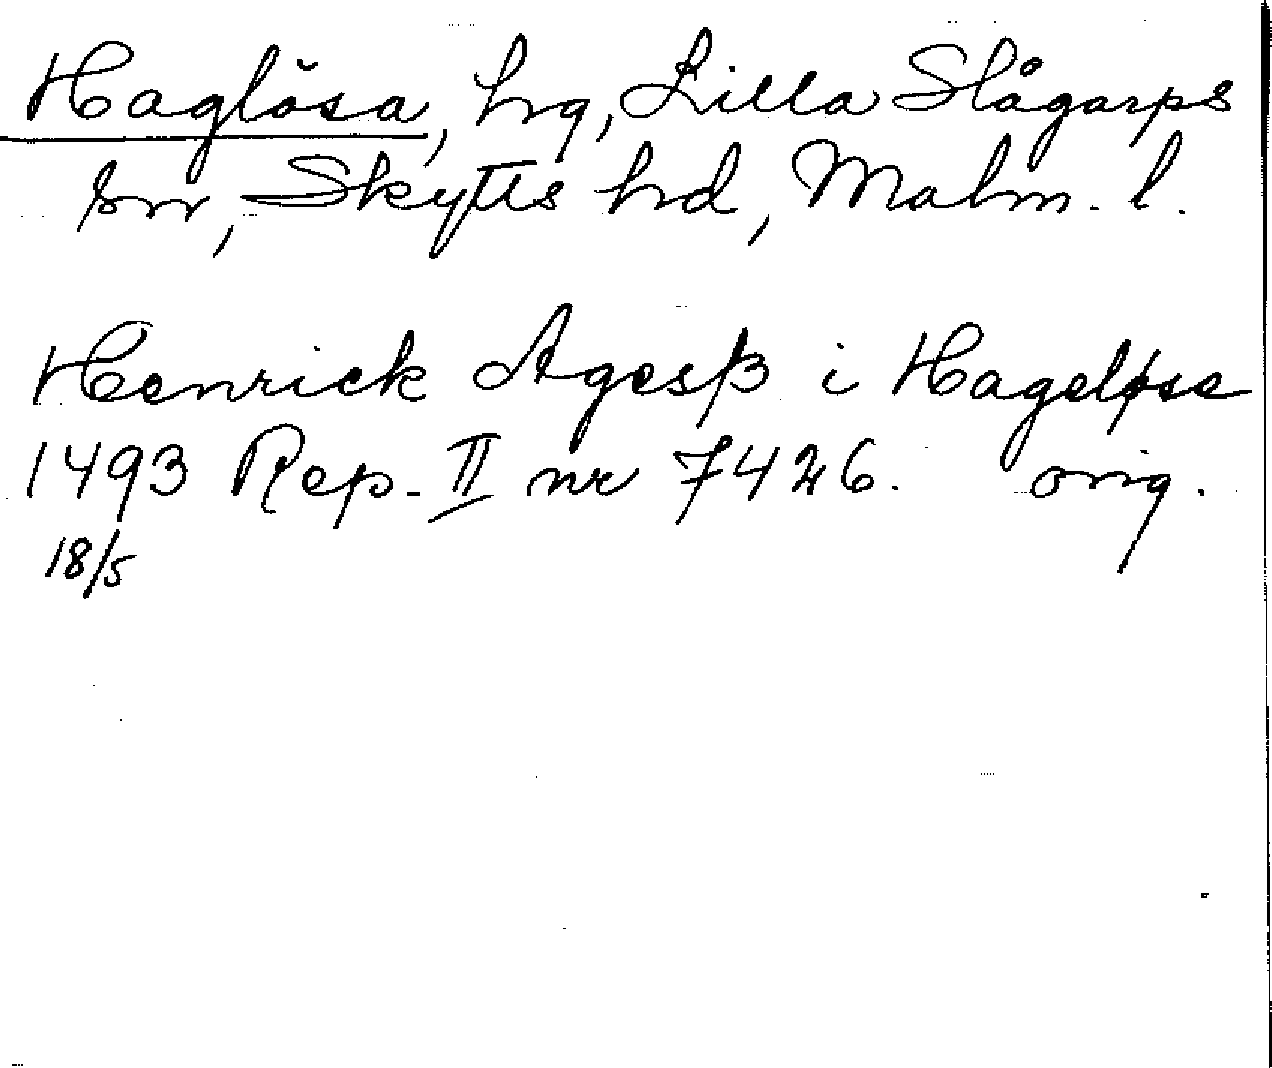 Haglösa, hg, Lilla Slågarps
sn, Skytts hd, Malm. l.
Henrick Agesß i Hageløse
1493 Rep. II nr 7426. orig.
18/5